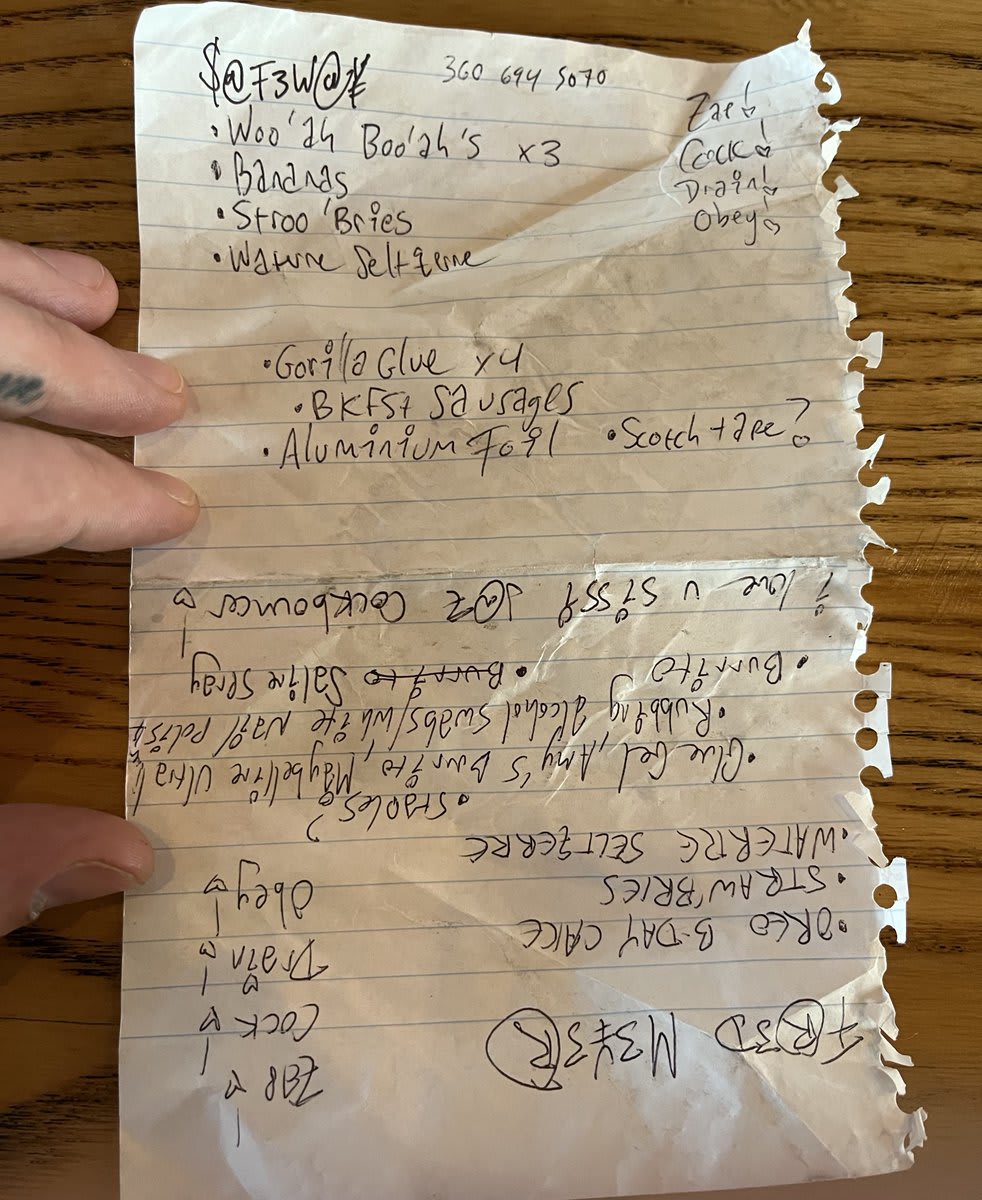 $@F3W@¥ 360 694 5070
• Woo'ah Boo'ah's x3
• Bananas
• Stroo'Bries
• Waturre Seltzerre
Zap!
Cock!
Drain!
Obey!
• Gorilla Glue x4
• BKFSt Sausages
• Aluminium Foil • Scotch tape?
FR3D M3¥3R
• OREO B-DAY CAKE
• STRAW'BRIES
• WATERRE SELTZERRE
• Staples?
• Glue Gel, Amy's Burrito, Maybelline Ultra
• Rubbing alcohol swabs/white Nail Polish
• Burrito • Burrito Saline Spray
i love u Sissy J@Z Cockbouncer!
Zap!
Cock!
Drain!
Obey!